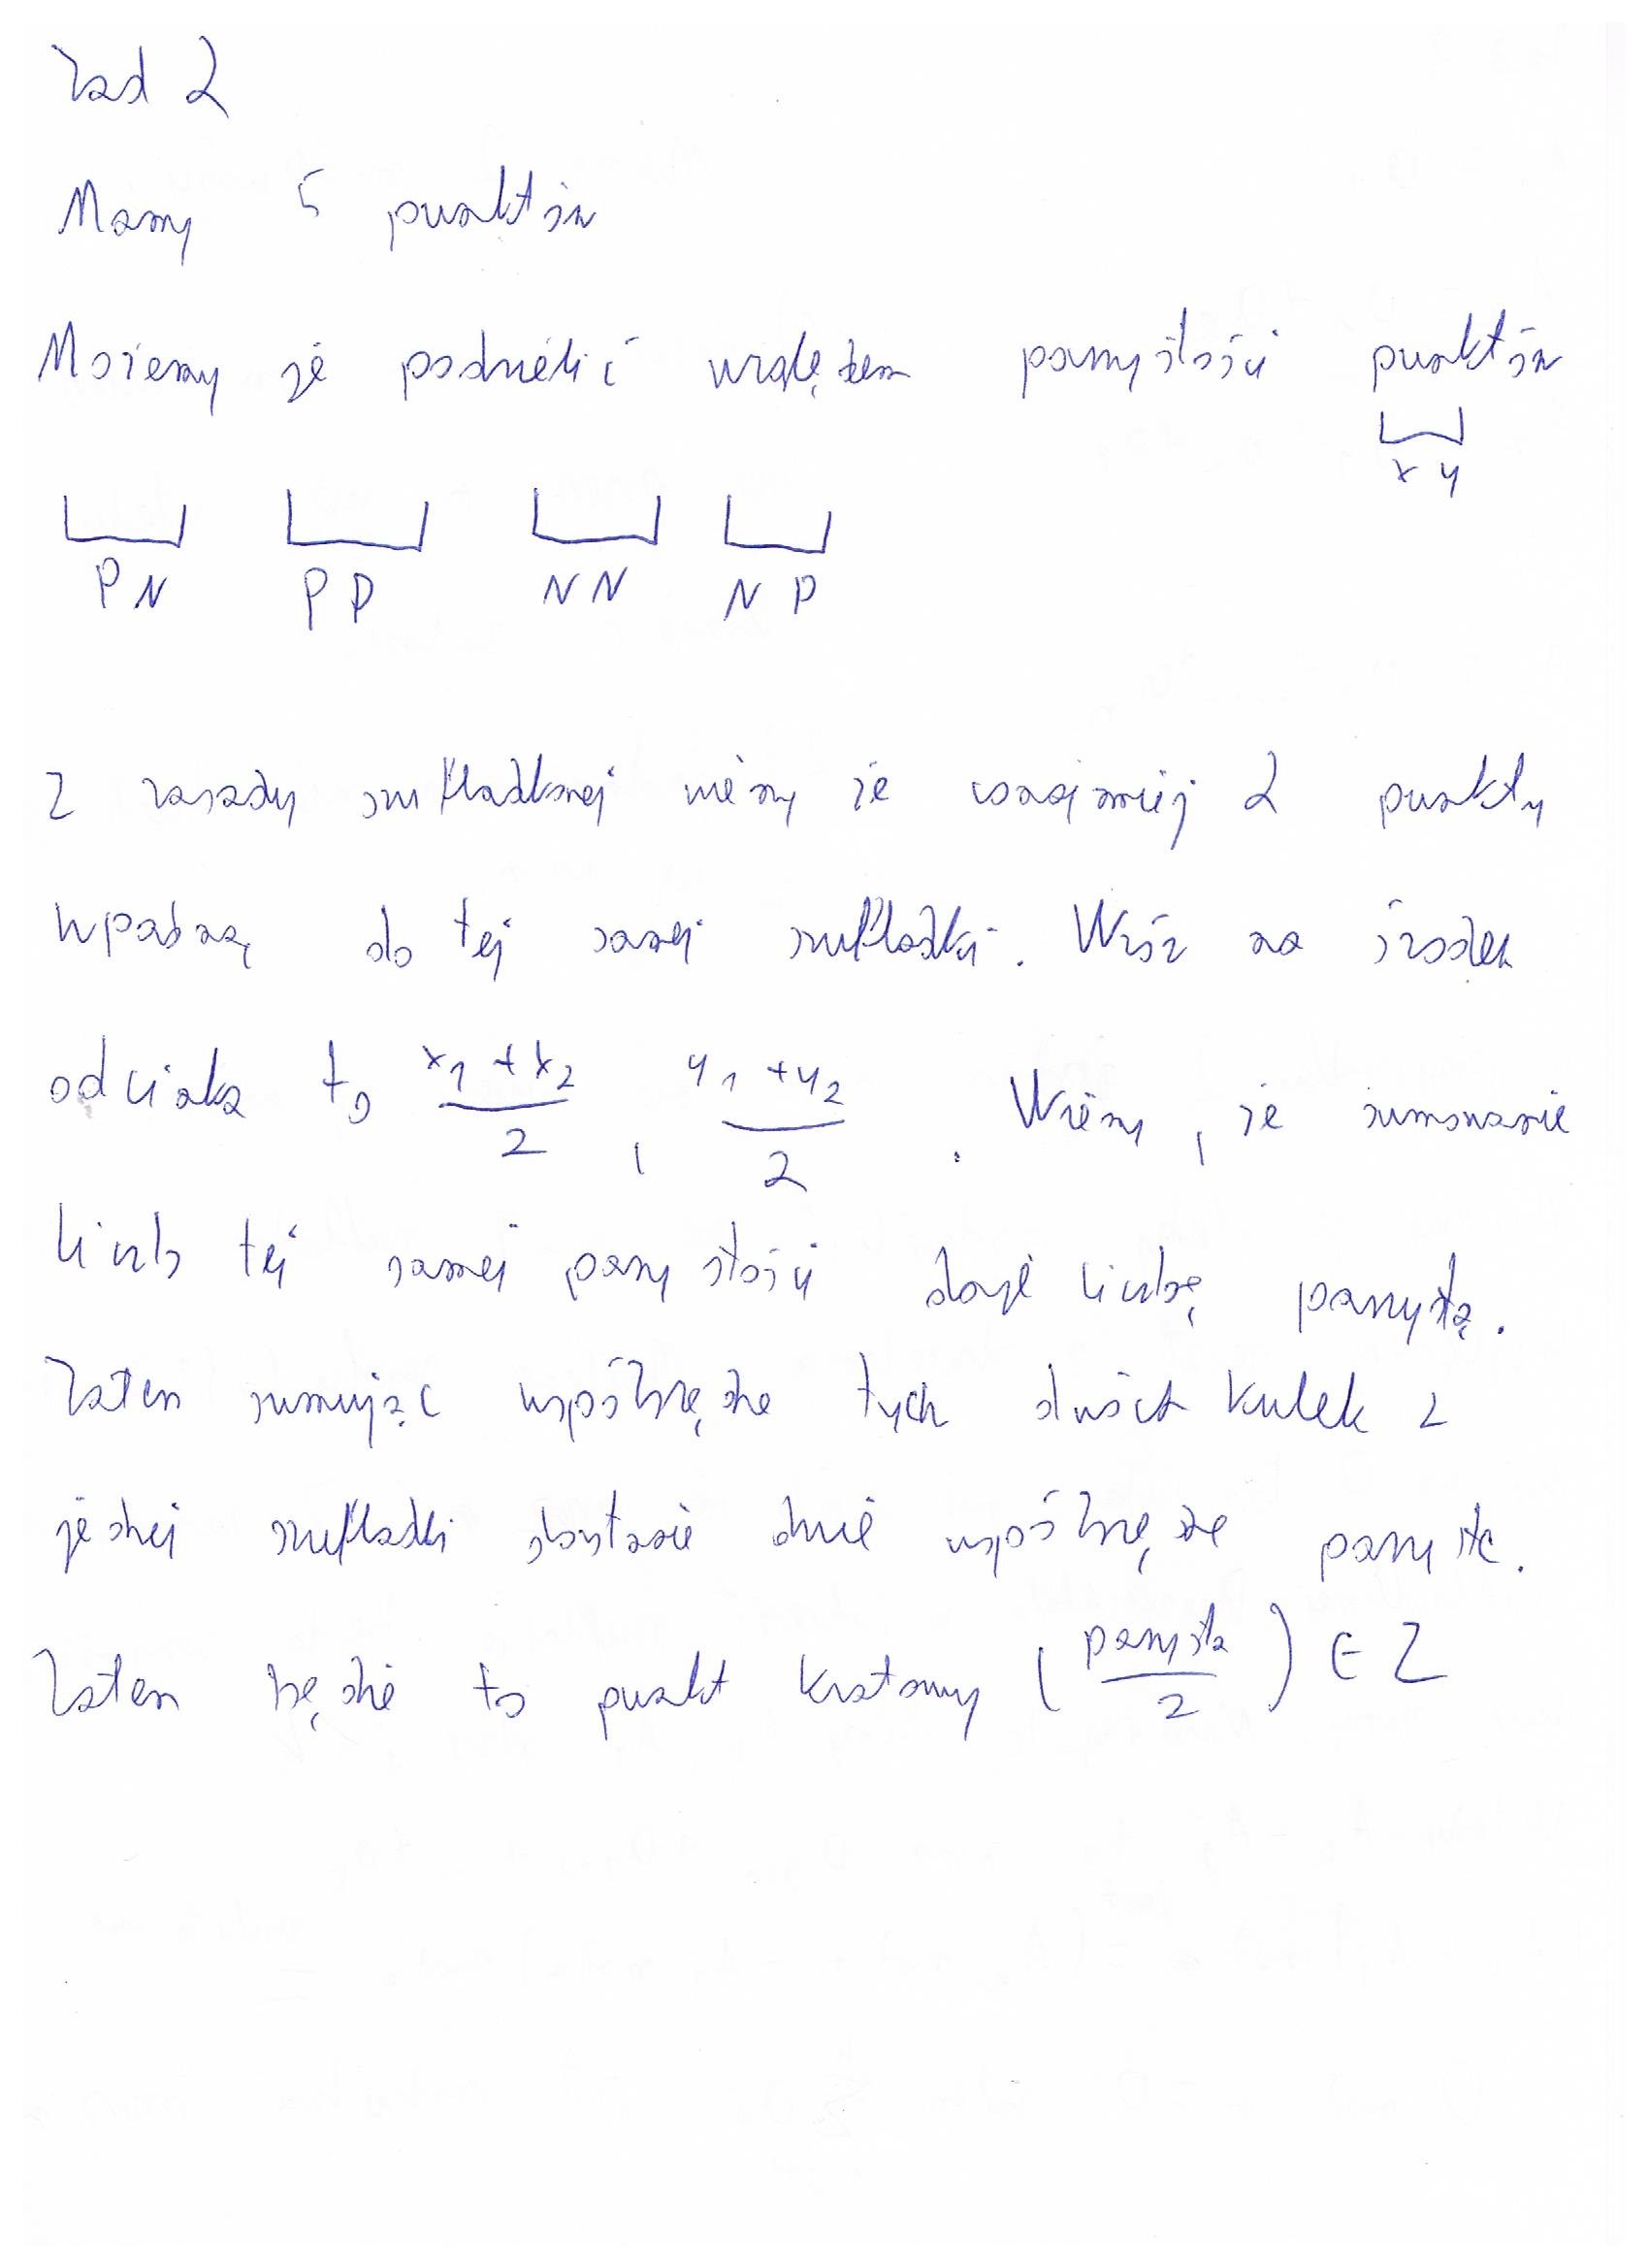 Zad 2
Mamy 5 punktów
Możemy je podzielić względem parzystości punktów
x y
PN PP NN NP
Z zasady szufladkowej wiemy że conajmniej 2 punkty
wpadną do tej samej szufladki. Wzór na środek
odcinka to \frac{x_1 + x_2}{2}, \frac{y_1 + y_2}{2}. Wiemy, że sumowanie
liczb tej samej parzystości daje liczbę parzystą.
Zatem sumując współrzędne tych dwóch kulek z
jednej szufladki dostanie dwie współrzędne parzyste.
Zatem będzie to punkt kratowy (\frac{parzysta}{2}) ∈ Z